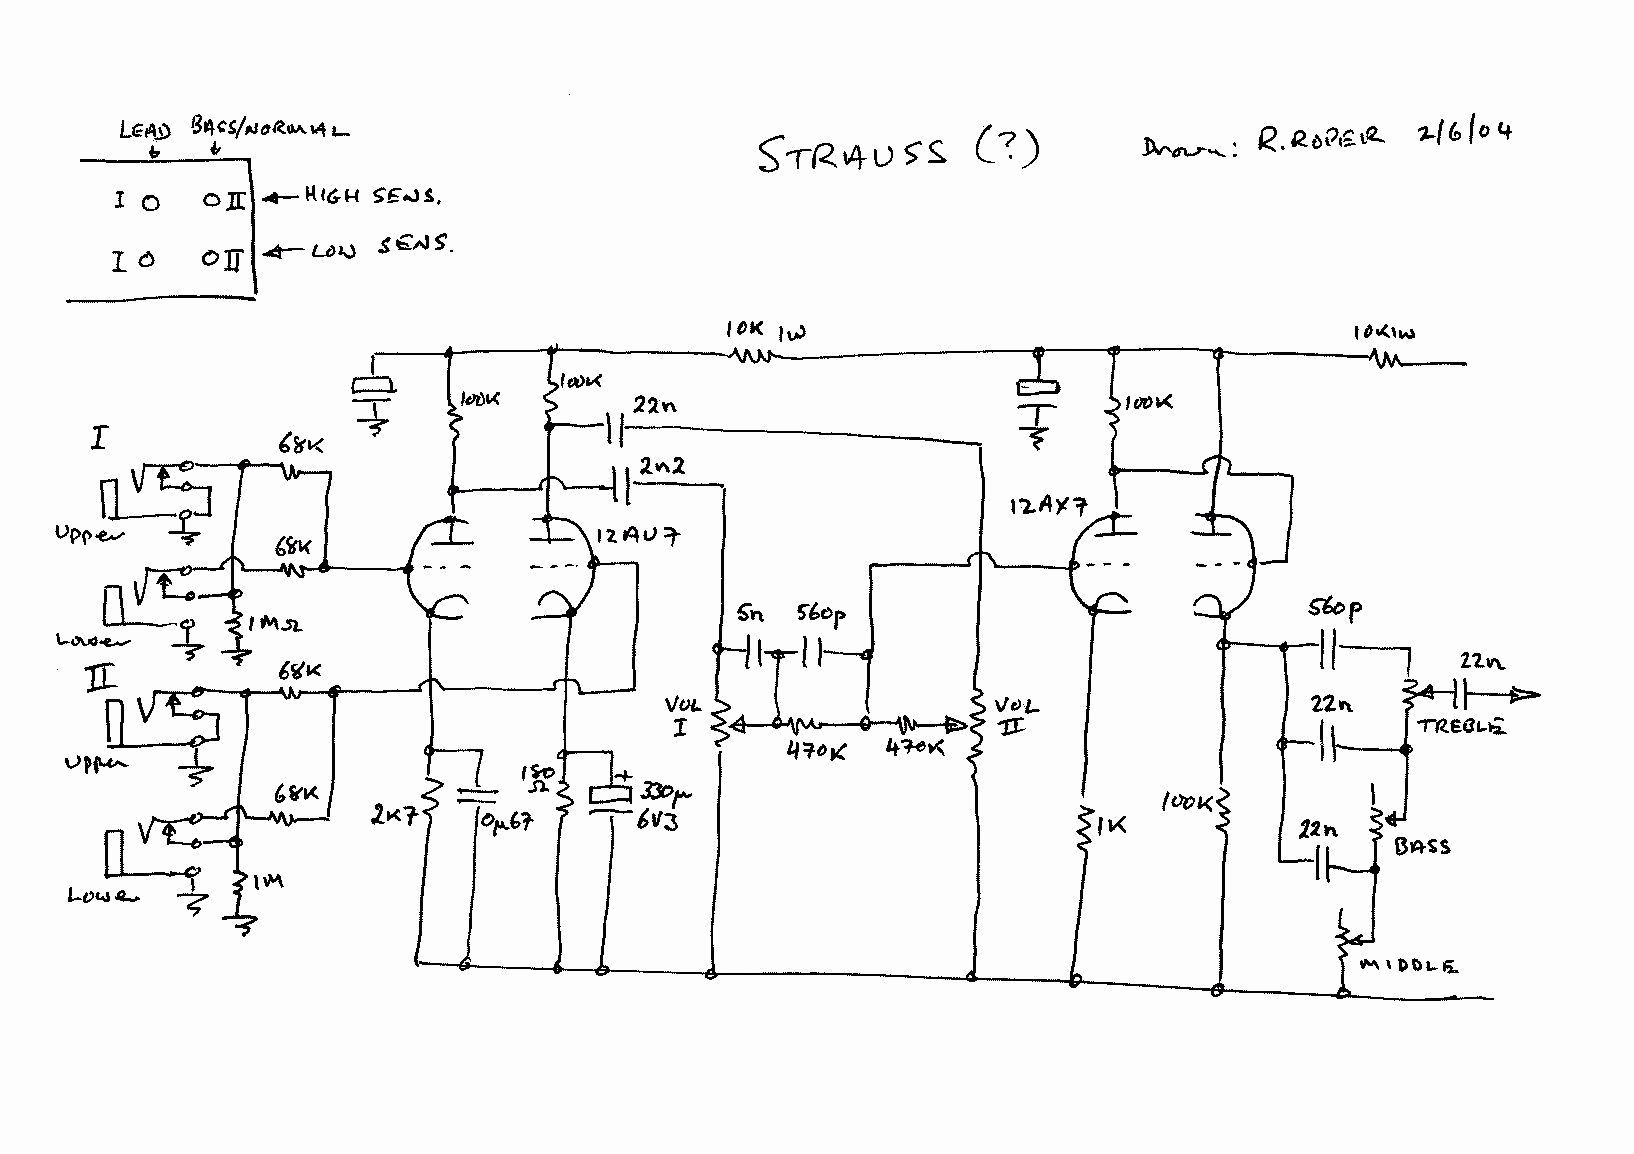 LEAD BASS/NORMAL
STRAUSS (?)
Drawn: R.ROPER 2/6/04
I II HIGH SENS.
I II LOW SENS.
10K 1W
10K1W
100K
100K
22n
100K
I
68K
2n2
Upper
12AU7
12AX7
68K
Lower
1MΩ
5n
560p
560p
II
68K
22n
VOL
I
VOL
II
22n
TREBLE
470K
470K
Upper
2K7
0µ67
180
Ω
330µ
6V3
68K
100K
1K
22n
BASS
Lower
1M
MIDDLE